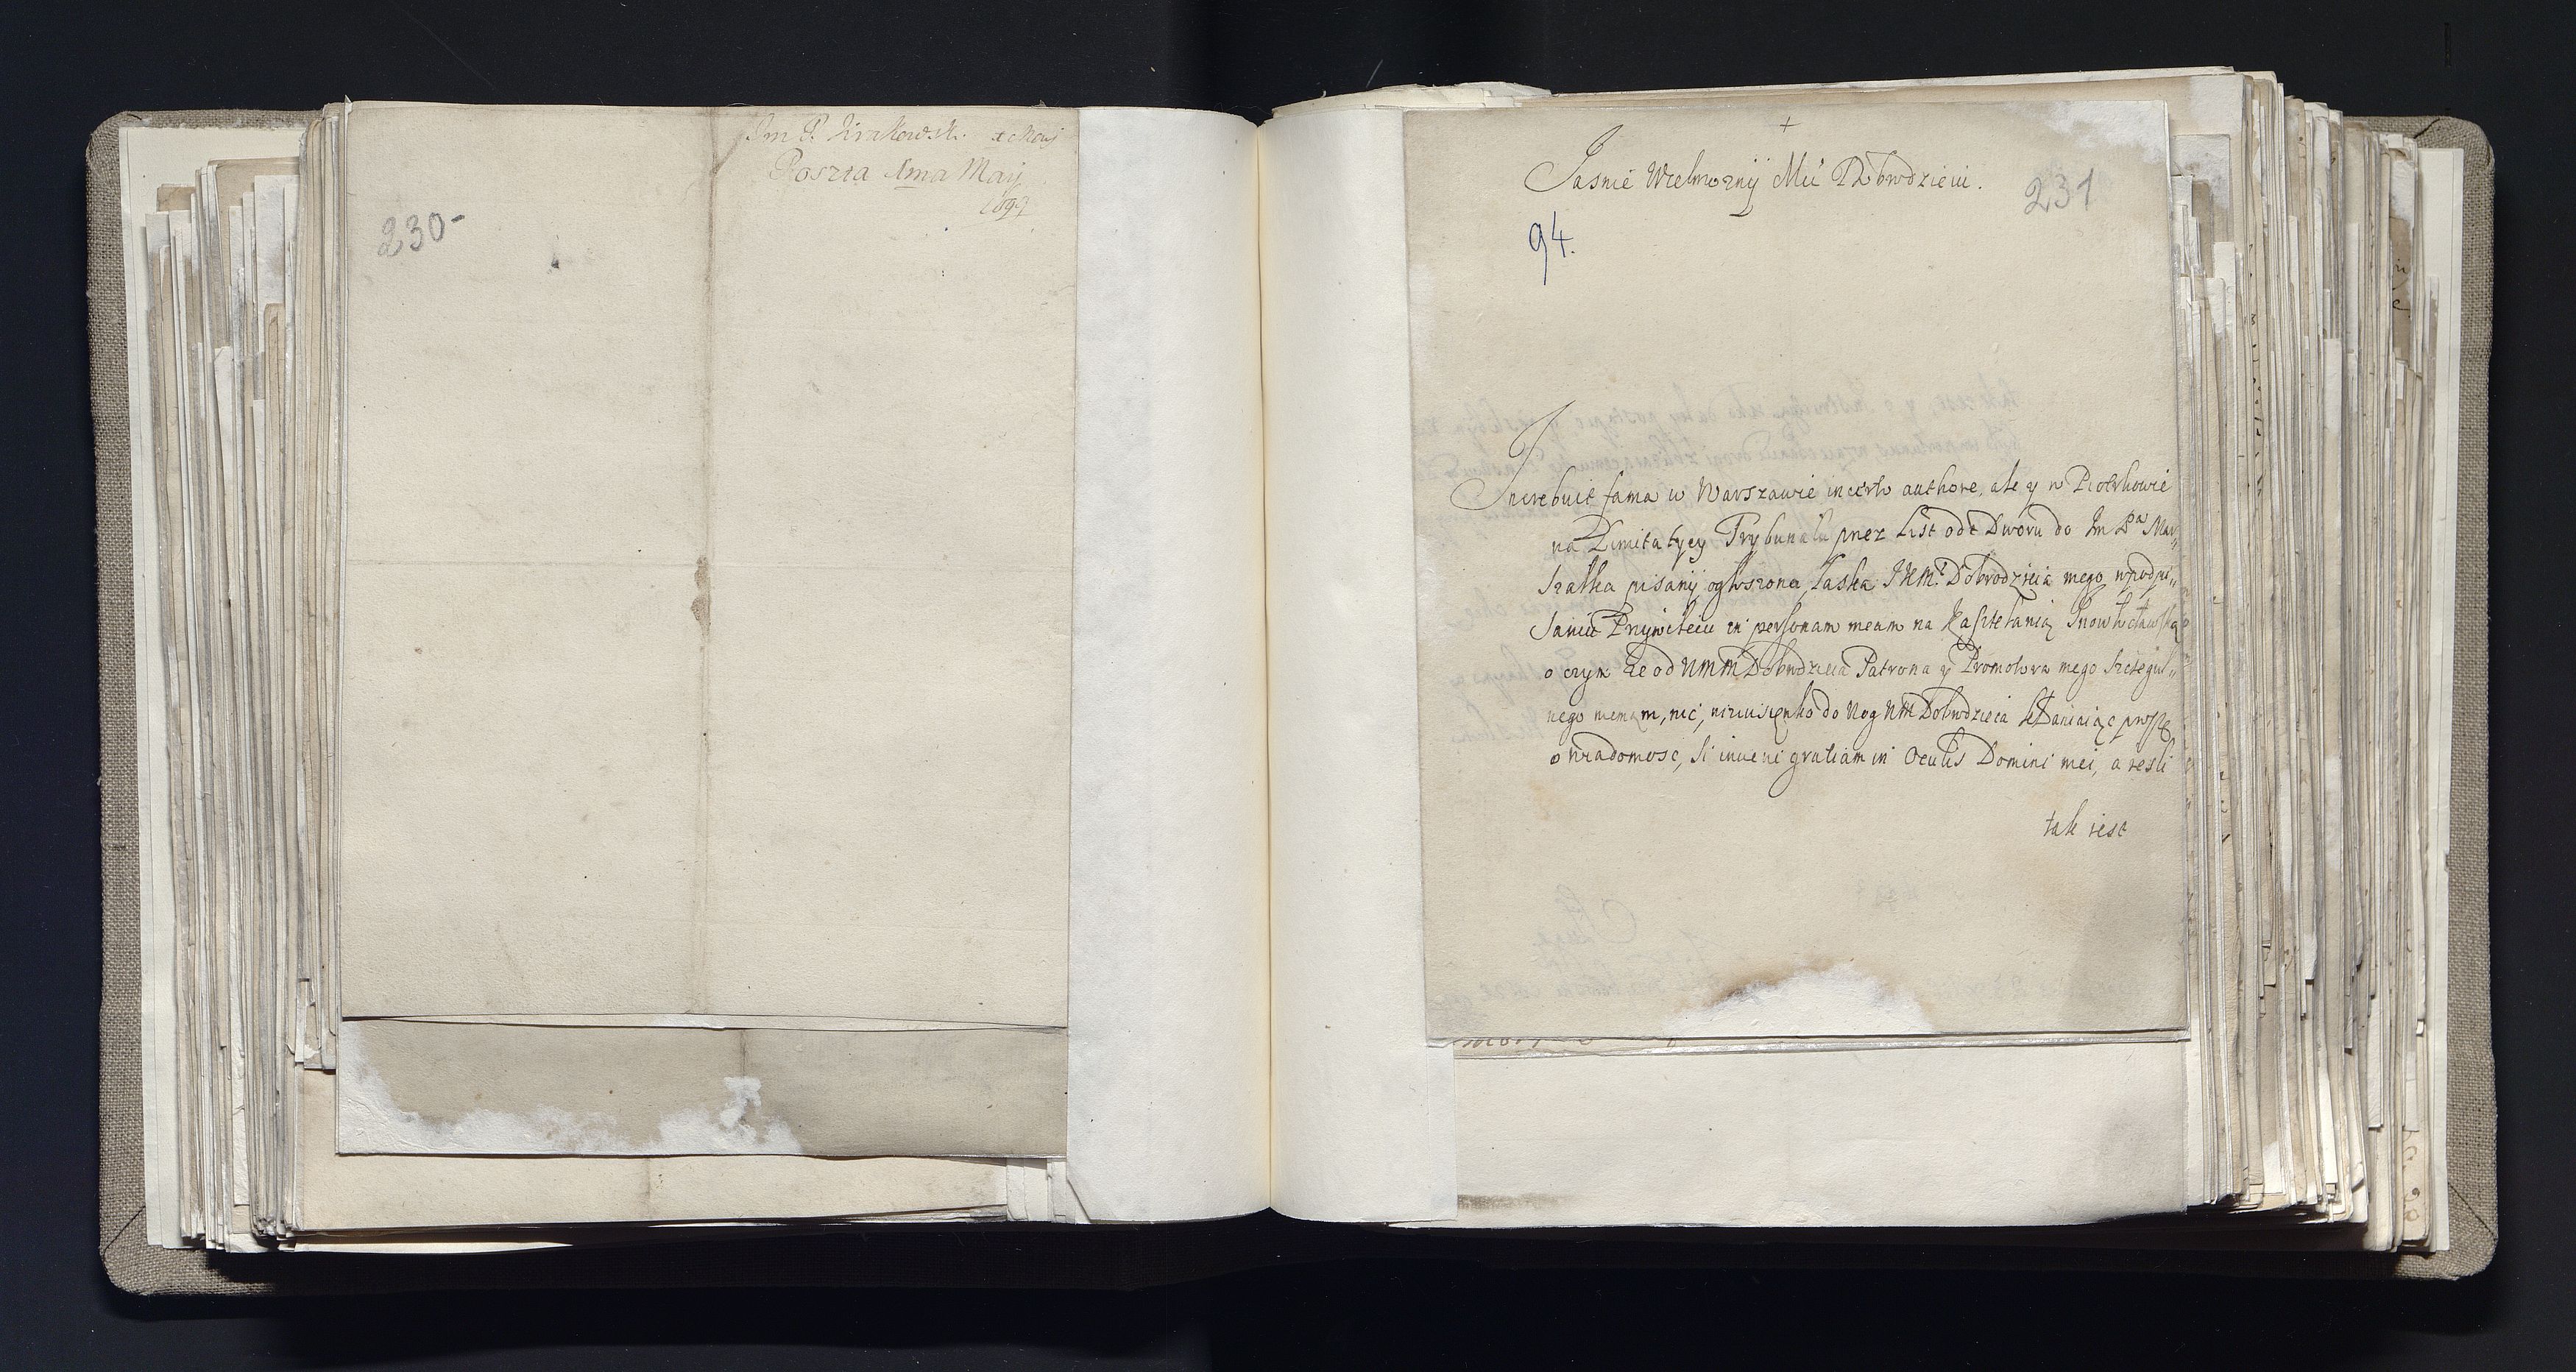 Im P. Krakowsk. x Maij
Poszta 1ma Maij
1697
230-
+
Jasnie Wielmoznÿ Mći P Dobrodzieiu.
231
94.
Increbuit fama w Warszawie incerto authore, ale y w Piotrkowie
na Limitatyey Trybunalu przez List odt Dworu do Im Pa Mar„
szałka pisanÿ ogłoszona łaska JKMci Dobrodzieia mego w podpi„
saniu Przywileiu in personam meam na Kasztelanią Inowłocławską
o czym że od WMM Dobrodzieia Patrona y Promotora mego szczegul„
nego niemam, nic, niziusienko do Nog WM Dobrodzieia kłaniaiąc proszę
o wiadomosc, si inueni gratiam in Oculis Domini mei, a iesli
tak iest